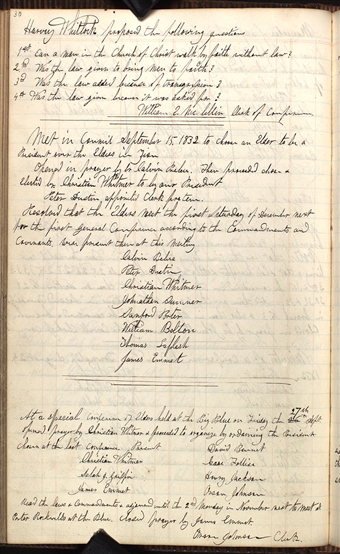 30
Harvey Whitlock proposed the following questions
1st Can a man in the Church of Christ walk by faith without law?
2nd Was the law given to bring men to faith?
3d Was the law added because of transgression?
4th Was the law given because it was asked for?
William E. Mc.lellin Clerk of Conference
Met in Council September 15, 1832 to chose an Elder to be a
President over the Elders in Zion
Opened in prayer by br Calvin Beebe. Then proceeded chose &
elected br Christian Whitmer to be our President
Peter Dustin appointed Clerk protem.
Resolved that the Elders meet the first Saturday of December next
for the first General Conference according to the Commandments and
Covenants. Were present then at this Meeting
Calvin Bebee
Peter Dustin
Christian Whitmer
Johnathan Sumner
Sanford Porter
William Bolton
Thomas
James Emmet
At a special Conference of Elders held at the Big Blue on Friday the 27th Sept.
opened prayer by Christian Whitmer & proceeded to organize by ordaining the President
chosen at the last conference. Present David Bennet
Christian Whitmer Isaac
Selah J. Griffin Henry Jackson
James Emmet Orson Johnson
Read the laws & Commandments & adjourned until the 2nd Monday in November next to meet at
Porter Rockwells at the Blue. closed prayer by James Emmet.
Orson Johnson Clerk.